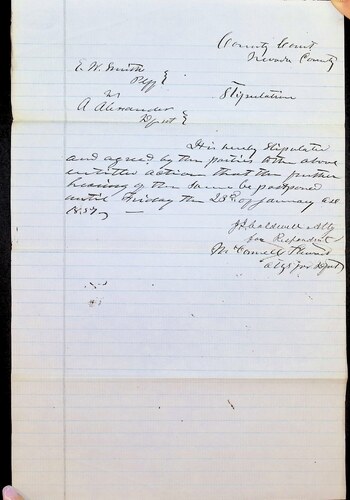 County Court
Nevada County
E. W. Smith
Plff }
vs
A Alexander
Dfent }
Stipulation
It is hereby stipulated
and agreed by the parties to the above
entitled action that the further
hearing of the same be postponed
until Friday the 23d of January A.D.
1857
J Caldwell Atty
for Respondent
McConnell
attys for Dfent